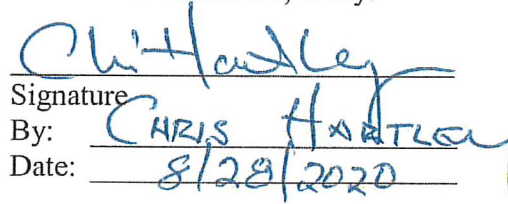 Chris Hartley
Signature
By: CHRIS HARTLEY
Date: 8/28/2020